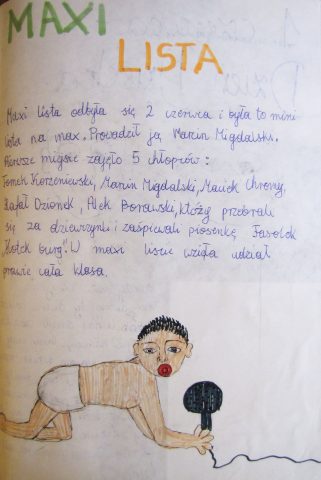 MAXI
LISTA
Maxi lista odbyła się 2 czerwca i była to mini
lista na max. Prowadził ją Marcin Migdalski.
Pierwsze miejsce zajęło 5 chłopców:
Tomek Korzeniewski, Marcin Migdalski, Maciek Chromy,
Rafał Dzionek, Alek Borawski, którzy przebrali
się za dziewczynki i zaśpiewali piosenkę Fasolek
"Kotek burą". W maxi liście wzięła udział
prawie cała klasa.